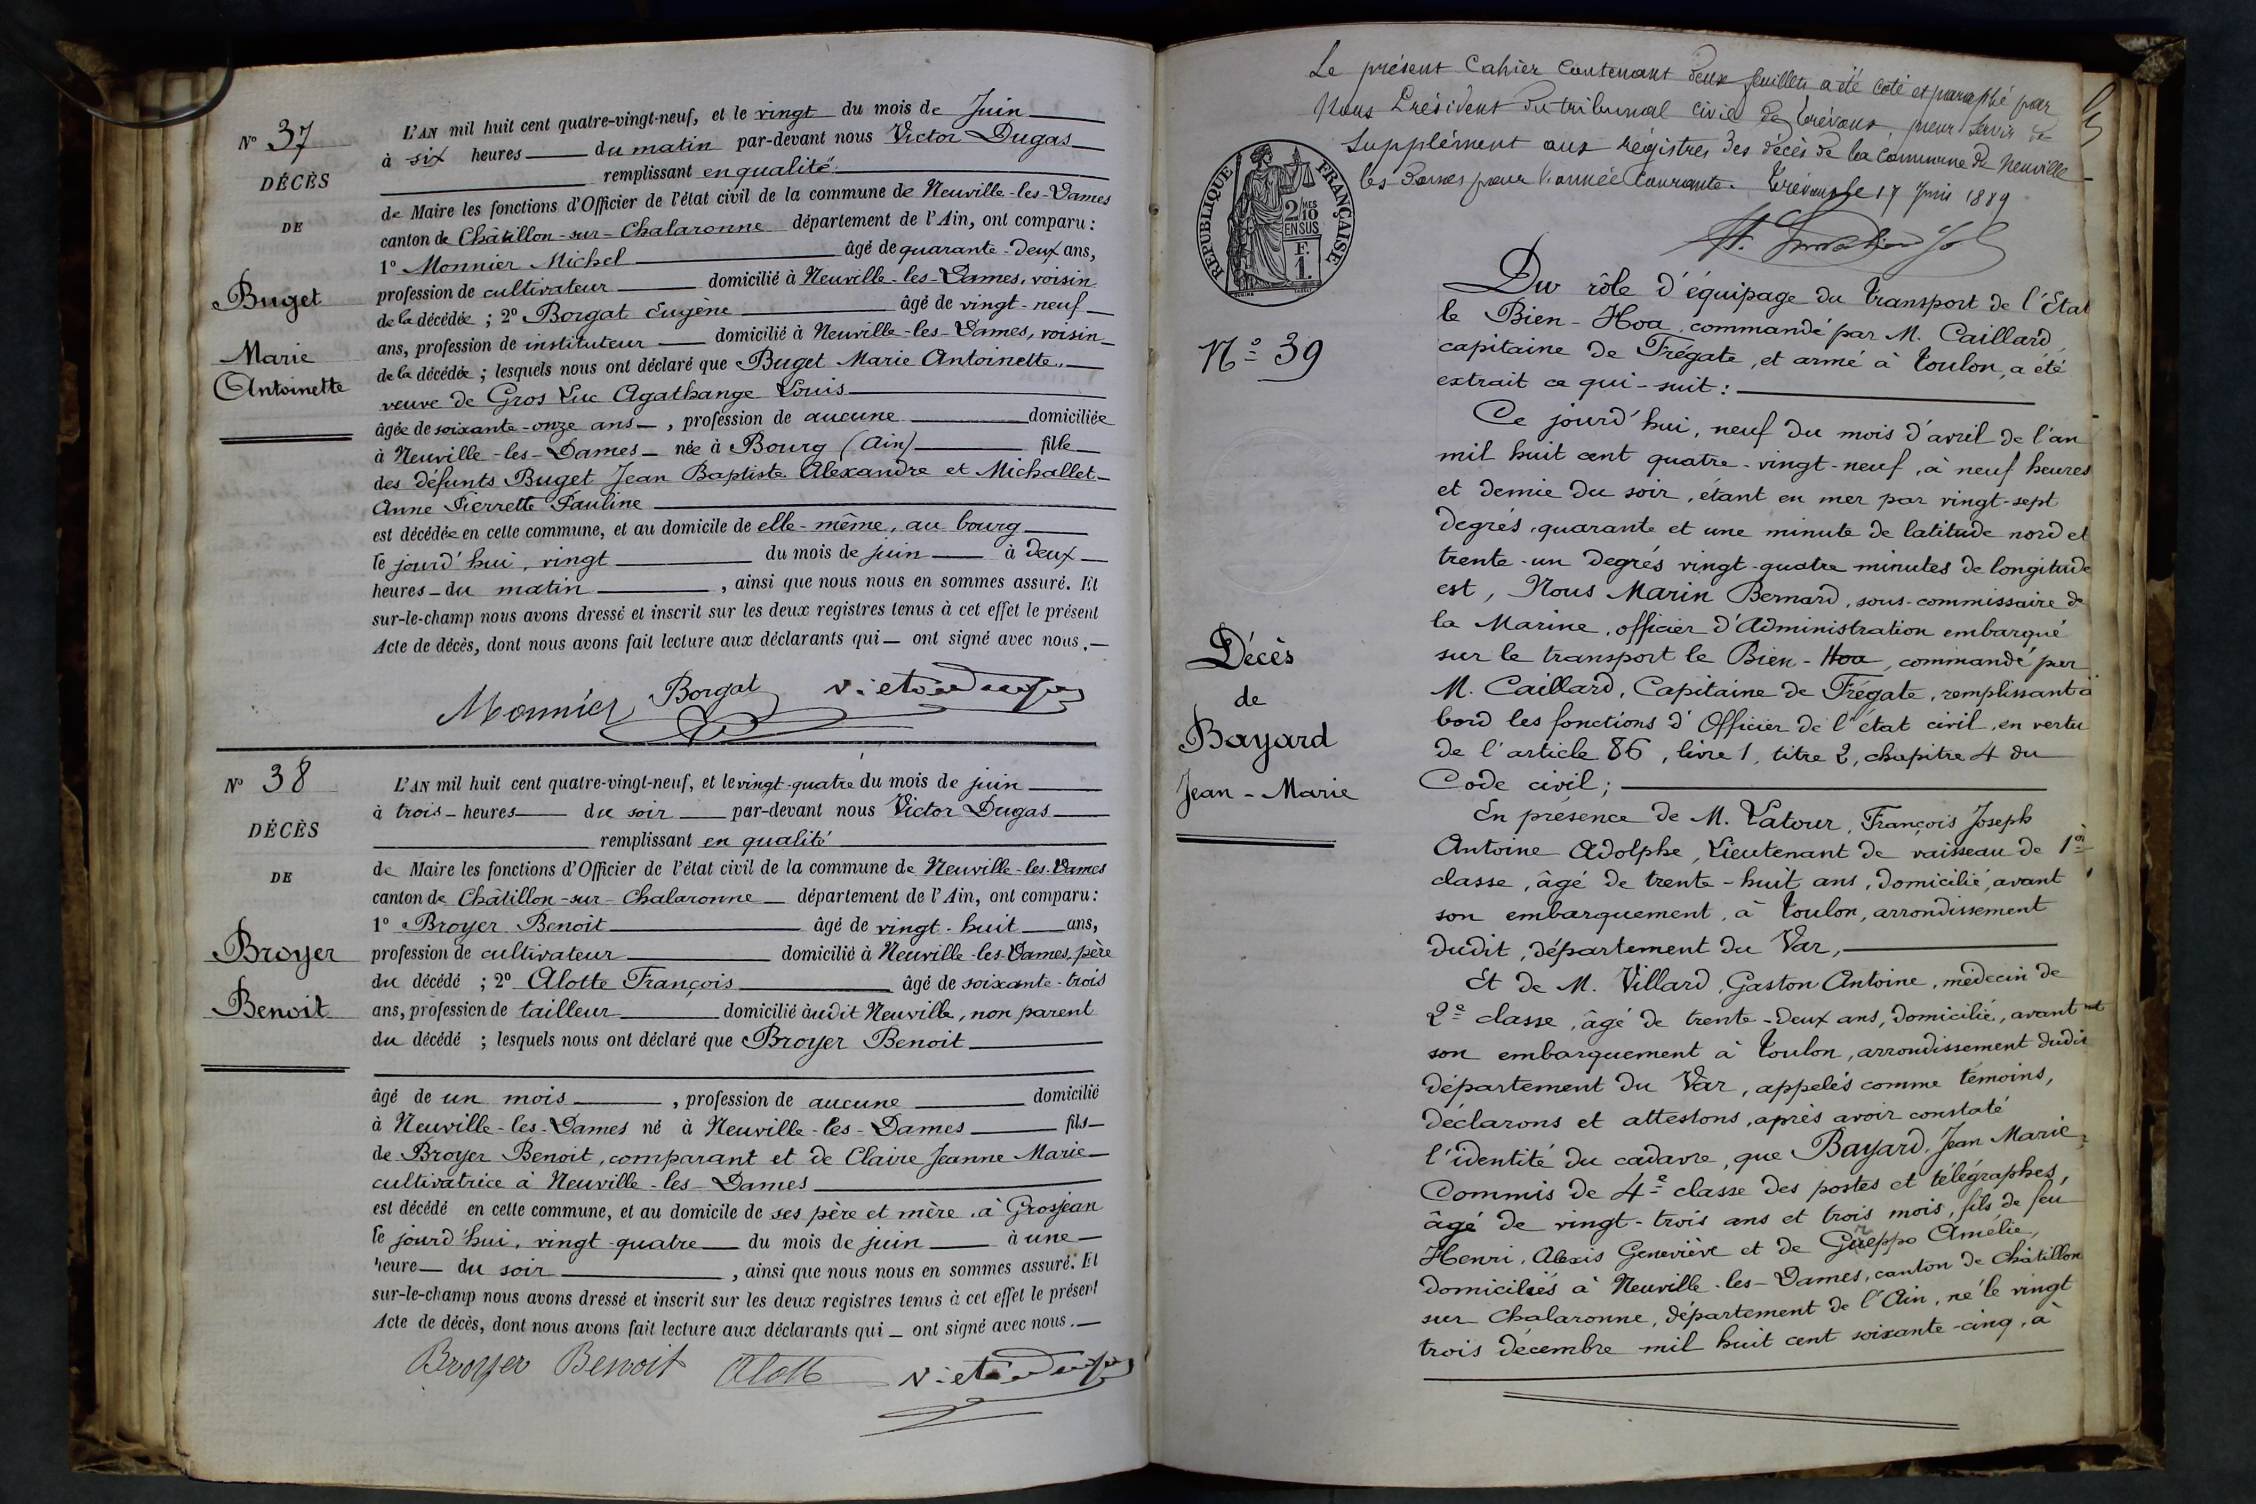 N° 37
DÉCÈS
DE
Buget
Marie
Antoinette
L'AN mil huit cent quatre-vingt-neuf, et le vingt du mois de Juin
à six heures du matin par-devant nous Victor Dugas
remplissant en qualité
de Maire les fonctions d'Officier de l'état civil de la commune de Neuville-les-Dames
canton de Châtillon-sur-Chalaronne département de l'Ain, ont comparu :
1° Monnier Michel âgé de quarante-deux ans,
profession de cultivateur domicilié à Neuville-les-Dames, voisin
de la décédée ; 2° Borgat Eugène âgé de vingt-neuf
ans, profession de instituteur domicilié à Neuville-les-Dames, voisin
de la décédée ; lesquels nous ont déclaré que Buget Marie Antoinette,
veuve de Gros Luc Agathange Louis
âgée de soixante-onze ans, profession de aucune domiciliée
à Neuville-les-Dames née à Bourg (Ain) fille
des défunts Buget Jean Baptiste Alexandre et Michallet
Anne Pierrette Pauline
est décédée en cette commune, et au domicile de elle-même, au bourg
le jourd'hui, vingt du mois de juin à deux
heures du matin, ainsi que nous nous en sommes assuré. Et
sur-le-champ nous avons dressé et inscrit sur les deux registres tenus à cet effet le présent
Acte de décès, dont nous avons fait lecture aux déclarants qui ont signé avec nous.
Monnier Borgat Victor Dugas
N° 38
DÉCÈS
DE
Broyer
Benoit
L'AN mil huit cent quatre-vingt-neuf, et le vingt-quatre du mois de juin
à trois heures du soir par-devant nous Victor Dugas
remplissant en qualité
de Maire les fonctions d'Officier de l'état civil de la commune de Neuville-les-Dames
canton de Châtillon-sur-Chalaronne département de l'Ain, ont comparu :
1° Broyer Benoit âgé de vingt-huit ans,
profession de cultivateur domicilié à Neuville-les-Dames, père
du décédé ; 2° Alotte François âgé de soixante-trois
ans, profession de tailleur domicilié audit Neuville, non parent
du décédé ; lesquels nous ont déclaré que Broyer Benoit
âgé de un mois, profession de aucune domicilié
à Neuville-les-Dames né à Neuville-les-Dames fils
de Broyer Benoit, comparant et de Claire Jeanne Marie
cultivatrice à Neuville-les-Dames
est décédé en cette commune, et au domicile de ses père et mère, à Grosjean
le jourd'hui, vingt-quatre du mois de juin à une
heure du soir, ainsi que nous nous en sommes assuré. Et
sur-le-champ nous avons dressé et inscrit sur les deux registres tenus à cet effet le présent
Acte de décès, dont nous avons fait lecture aux déclarants qui ont signé avec nous.
Broyer Benoit Alott Victor Dugas
Le présent Cahier contenant deux feuillets a été coté et paraphé par
Nous Président du tribunal civil de Trévoux, pour servir de
supplément aux régistres des décès de la commune de Neuville
les-Dames pour l'année courante. Trévoux le 17 Juin 1889
RÉPUBLIQUE FRANÇAISE
2/10 MES
EN SUS
F.
1.
N° 39
Décès
de
Bayard
Jean-Marie
Du rôle d'équipage du transport de l'Etat
le Bien-Hoa, commandé par M. Caillard,
capitaine de Frégate, et armé à Toulon, a été
extrait ce qui-suit :
Ce jourd'hui, neuf du mois d'avril de l'an
mil huit cent quatre-vingt-neuf, à neuf heures
et demie du soir, étant en mer par vingt-sept
degrés, quarante et une minute de latitude nord et
trente-un degrés vingt-quatre minutes de longitude
est, Nous Marin Bernard, sous-commissaire de
la Marine, officier d'Administration embarqué
sur le transport le Bien-Hoa, commandé par
M. Caillard, Capitaine de Frégate, remplissant à
bord les fonctions d'Officier de l'état civil, en vertu
de l'article 86, livre 1, titre 2, chapitre 4 du
Code civil ;
En présence de M. Latour, François Joseph
Antoine Adolphe, Lieutenant de vaisseau de 1re
classe, âgé de trente-huit ans, domicilié, avant
son embarquement, à Toulon, arrondissement
dudit, département du Var,
Et de M. Villard, Gaston Antoine, médecin de
2e classe, âgé de trente-deux ans, domicilié, avant
son embarquement à Toulon, arrondissement dudit
département du Var, appelés comme témoins,
déclarons et attestons, après avoir constaté
l'identité du cadavre, que Bayard, Jean Marie,
Commis de 4e classe des postes et télégraphes,
âgé de vingt-trois ans et trois mois, fils de feu
Henri, Alexis Geneviève et de Amélie,
domiciliés à Neuville-les-Dames, canton de Châtillon
sur Chalaronne, département de l'Ain, né le vingt
trois décembre mil huit cent soixante-cinq, à